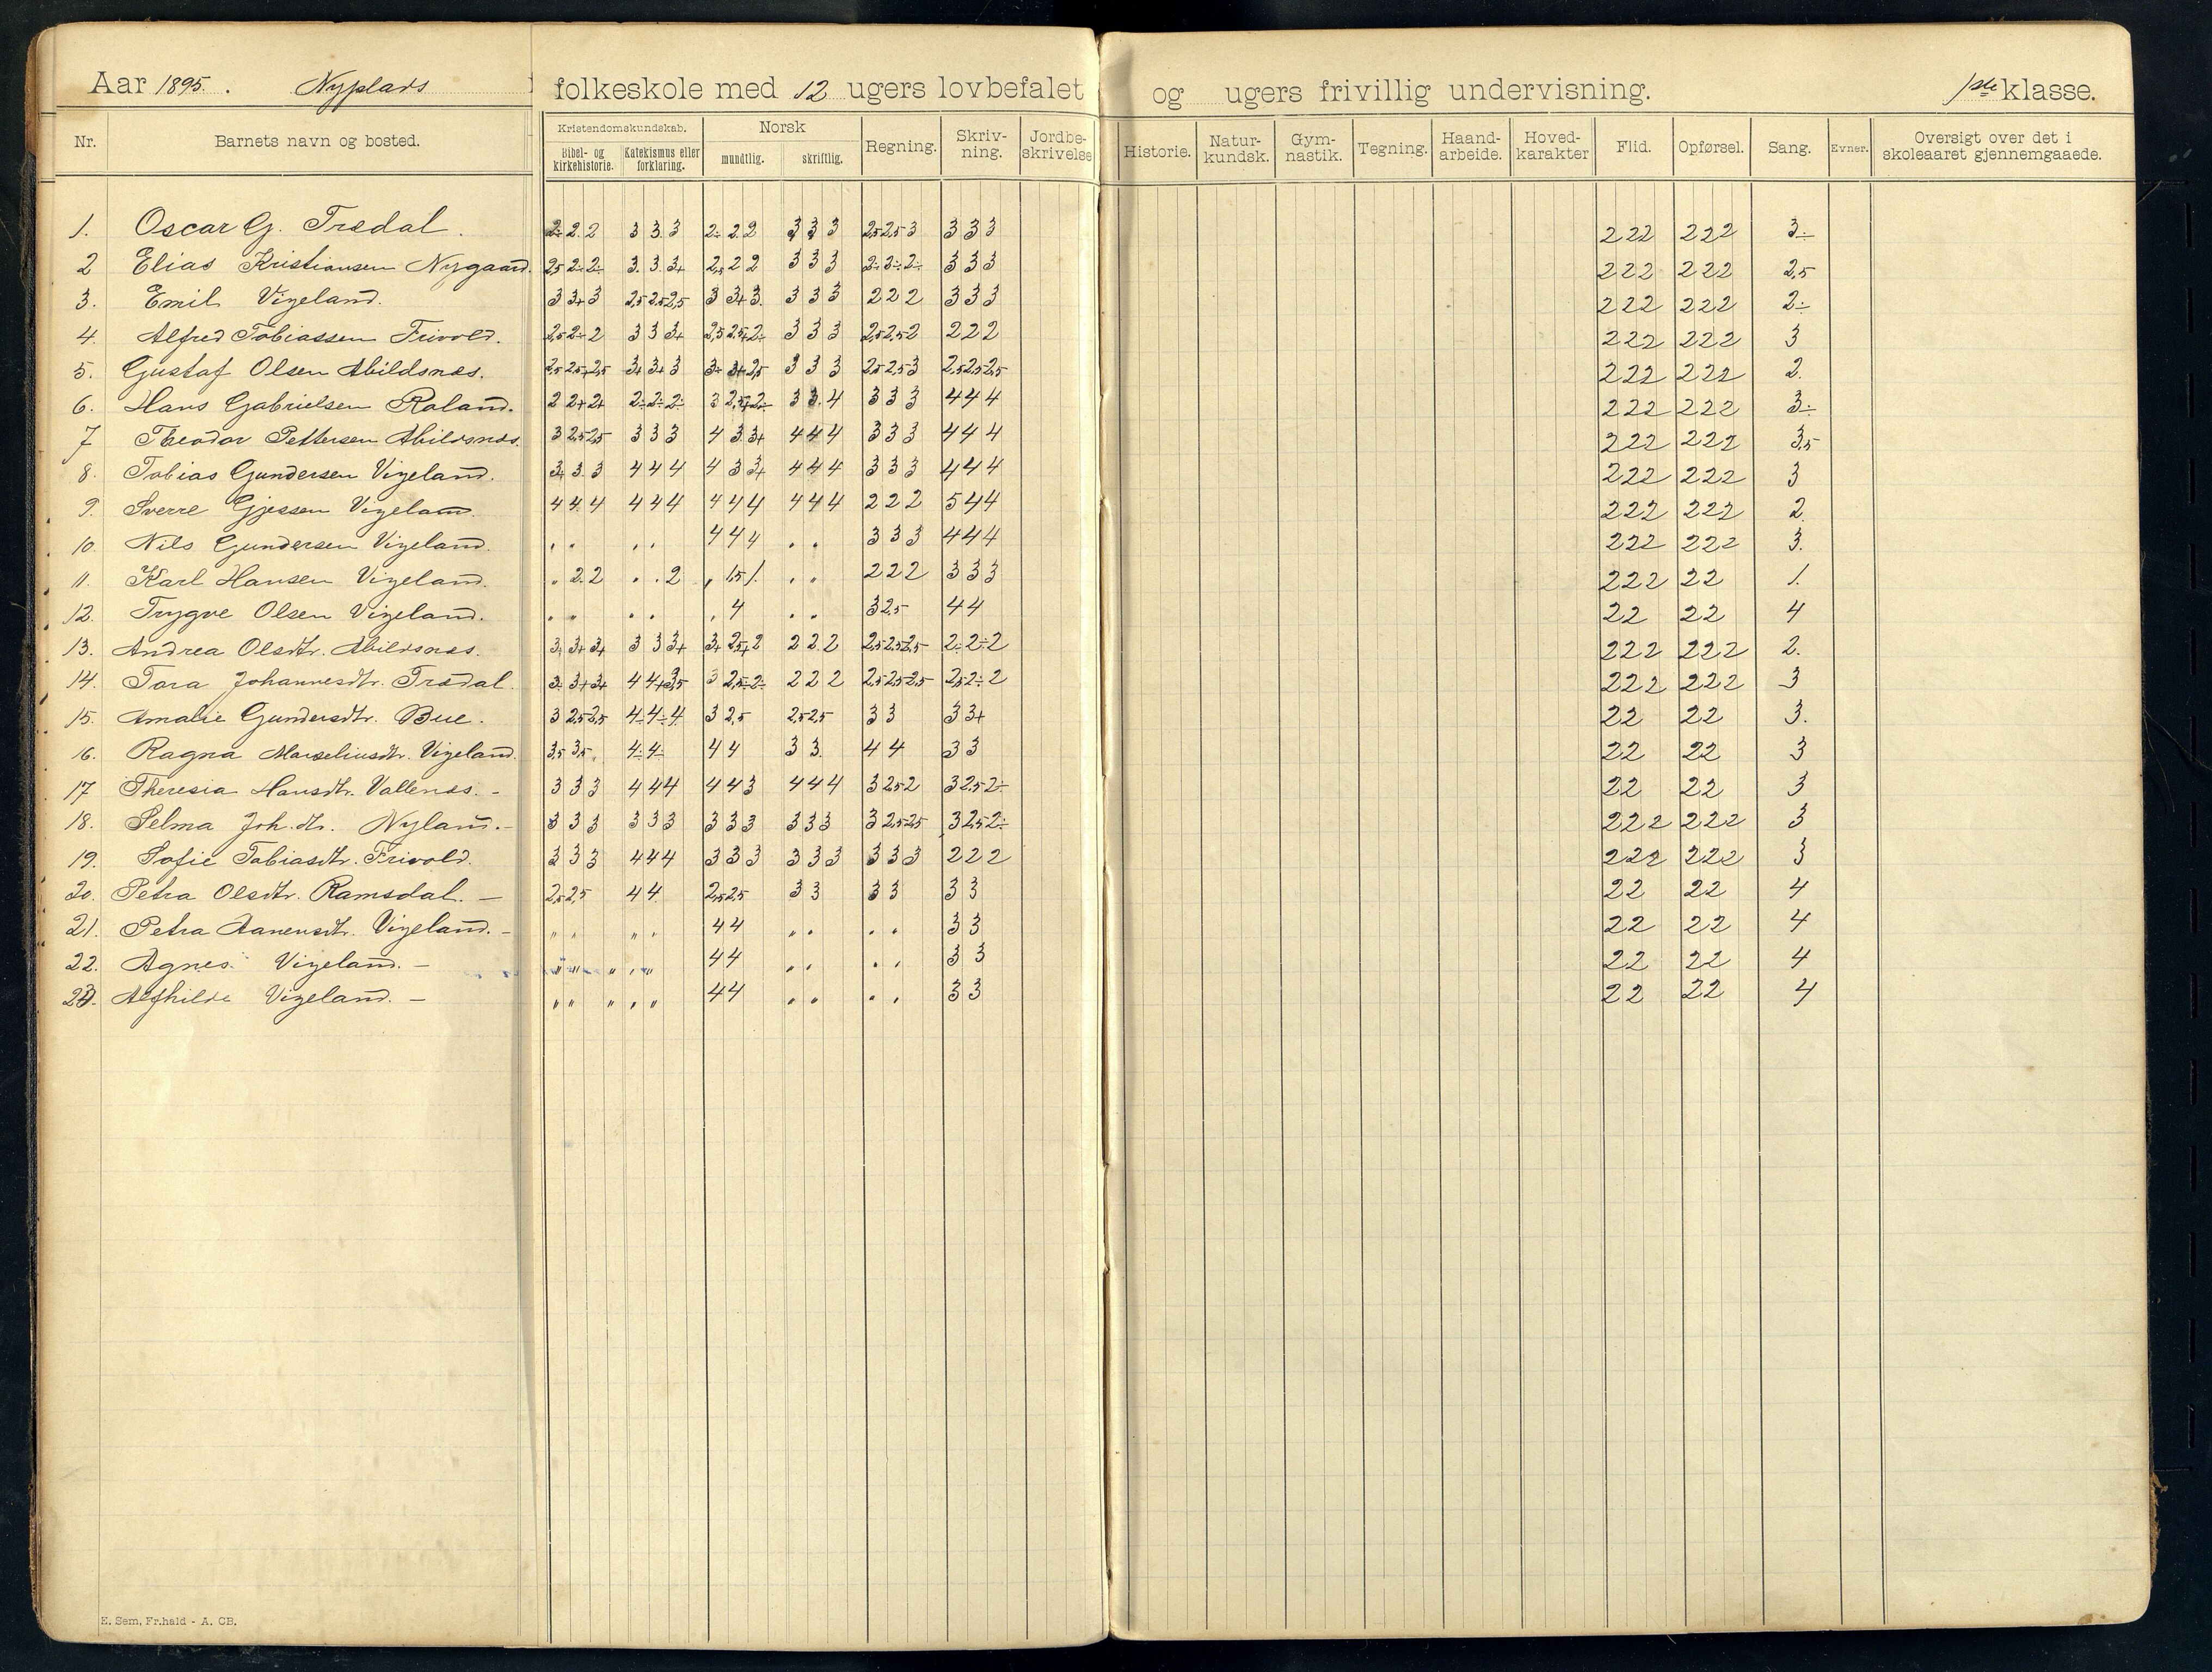 Aar 1895. Nyplads folkeskole med 12 ugers lovbefalet og ugers frivillig undervisning. 1ste klasse.
Nr. Barnets navn og bosted. Kristendomskundskab. Bibel- og kirkehistorie. Katekismus eller forklaring. Norsk mundtlig. skriftlig. Regning. Skriv-ning. Jordbe-skrivelse Historie. Natur-kundsk. Gym-nastik. Tegning. Haand-arbeide. Hoved-karakter Flid. Opførsel. Sang. Evner. Oversigt over det i skoleaaret gjennemgaaede.
1. Oscar G. Tredal. 2÷ 2 2 3 3 3 2÷ 2 2 3 3 3 2,5 2,5 3 3 3 3 2 2 2 2 2 2 3÷
2 Elias Kristiansen Nygaard. 2,5 2÷ 2÷ 3. 3. 3+ 2,5 2 2 3 3 3 2÷ 3÷ 2÷ 3 3 3 2 2 2 2 2 2 2,5
3. Emil Vigeland. 3 3+ 3 2,5 2,5 2,5 3 3+ 3. 3 3 3 2 2 2 3 3 3 2 2 2 2 2 2 2÷
4. Alfred Tobiassen Frivold. 2,5 2÷ 2 3 3 3+ 2,5 2,5+ 2÷ 3 3 3 2,5 2,5 2 2 2 2 2 2 2 2 2 2 3
5. Gustaf Olsen Abildsnes. 2,5 2,5+ 2,5 3+ 3+ 3 3+ 3+ 2,5 3 3 3 2,5 2,5 3 2,5 2,5 2,5 2 2 2 2 2 2 2.
6. Hans Gabrielsen Roland. 2 2+ 2+ 2÷ 2÷ 2÷ 3 2,5+ 2÷ 3 3. 4 3 3 3 4 4 4 2 2 2 2 2 2 3÷
7 Theodor Pettersen Abildsnes. 3 2,5 2,5 3 3 3 4 3 3+ 4 4 4 3 3 3 4 4 4 2 2 2 2 2 2 3,5
8. Tobias Gundersen Vigeland. 3+ 3 3 4 4 4 4 3 3+ 4 4 4 3 3 3 4 4 4 2 2 2 2 2 2 3
9. Sverre Gjessen Vigeland. 4 4 4 4 4 4 4 4 4 4 4 4 2 2 2 5 4 4 2 2 2 2 2 2 2.
10. Nils Gundersen Vigeland. " " " " 4 4 4 " " 3 3 3 4 4 4 2 2 2 2 2 2 3.
11. Karl Hansen Vigeland. " 2 2 " " 2 " 1,5 1. " " 2 2 2 3 3 3 2 2 2 2 2 1.
12. Trygve Olsen Vigeland. " " " " " 4 " " 3 2,5 4 4 2 2 2 2 4
13. Andrea Olsdtr. Abildsnes. 3+ 3+ 3+ 3 3 3+ 3+ 2,5+ 2 2 2 2 2,5 2,5 2,5 2÷ 2÷ 2 2 2 2 2 2 2 2.
14. Tora Johannesdtr. Tredal. 3÷ 3+ 3+ 4 4+ 3,5 3 2,5÷ 2÷ 2 2 2 2,5 2,5 2,5 2,5 2÷ 2 2 2 2 2 2 2 3
15. Amalie Gundersdtr. Bue. 3 2,5 2,5 4÷ 4÷ 4 3 2,5 2,5 2,5 3 3 3 3+ 2 2 2 2 3.
16. Ragna Marseliusdtr. Vigeland. 3,5 3,5 " 4÷ 4÷ 4 4 3 3. 4 4 3 3 2 2 2 2 3
17 Theresia Hansdtr. Vallenes. - 3 3 3 4 4 4 4 4 3 4 4 4 3 2,5 2 3 2,5 2÷ 2 2 2 2 3
18. Selma Joh.dtr. Nyland. - 3 3 3 3 3 3 3 3 3 3 3 3 3 2,5 2,5 3 2,5 2÷ 2 2 2 2 2 2 3
19. Sofie Tobiasdtr. Frivold. 3 3 3 4 4 4 3 3 3 3 3 3 3 3 3 2 2 2 2 2 2 2 2 2 3
20. Petra Olsdtr. Ramsdal. - 2,5 2,5 4 4 2,5 2,5 3 3 3 3 3 3 2 2 2 2 4
21. Petra Aanensdtr. Vigeland. - " " " " 4 4 " " " " 3 3 2 2 2 2 4
22. Agnes Vigeland. - " " " " " 4 4 " " " " 3 3 2 2 2 2 4
23. Alfhilde Vigeland. - " " " " " 4 4 " " " " 3 3 2 2 2 2 4
E. Sem, Fr.hald - A. CB.